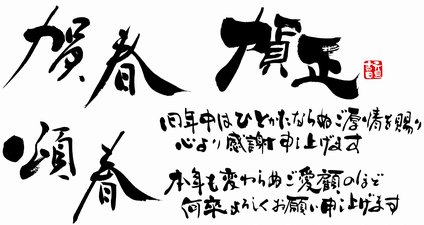 賀春
賀正
頌春
旧年中はひとかたならぬご厚情を賜り
心より感謝申し上げます
本年も変わらぬご愛顧のほど
何卒よろしくお願い申し上げます